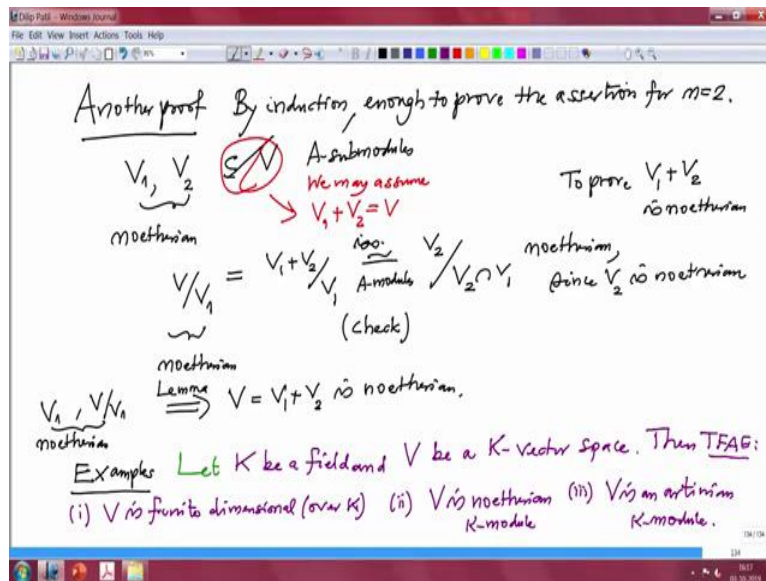 Dilip Patil - Windows Journal
File Edit View Insert Actions Tools Help
Another proof By induction, enough to prove the assertion for n=2.
V₁, V₂ ⊆ V A-submodules
noetherian
We may assume
V₁ + V₂ = V
To prove V₁ + V₂
is noetherian
V/V₁ = V₁+V₂/V₁ iso. ≅ A-modules V₂/V₂∩V₁ noetherian,
since V₂ is noetherian
(check)
noetherian
V₁, V/V₁ Lemma ⟹ V = V₁ + V₂ is noetherian.
noetherian
Examples Let K be a field and V be a K-vector space. Then TFAE:
(i) V is finite dimensional (over K) (ii) V is noetherian K-module (iii) V is an artinian K-module.
134/134
134
16:17